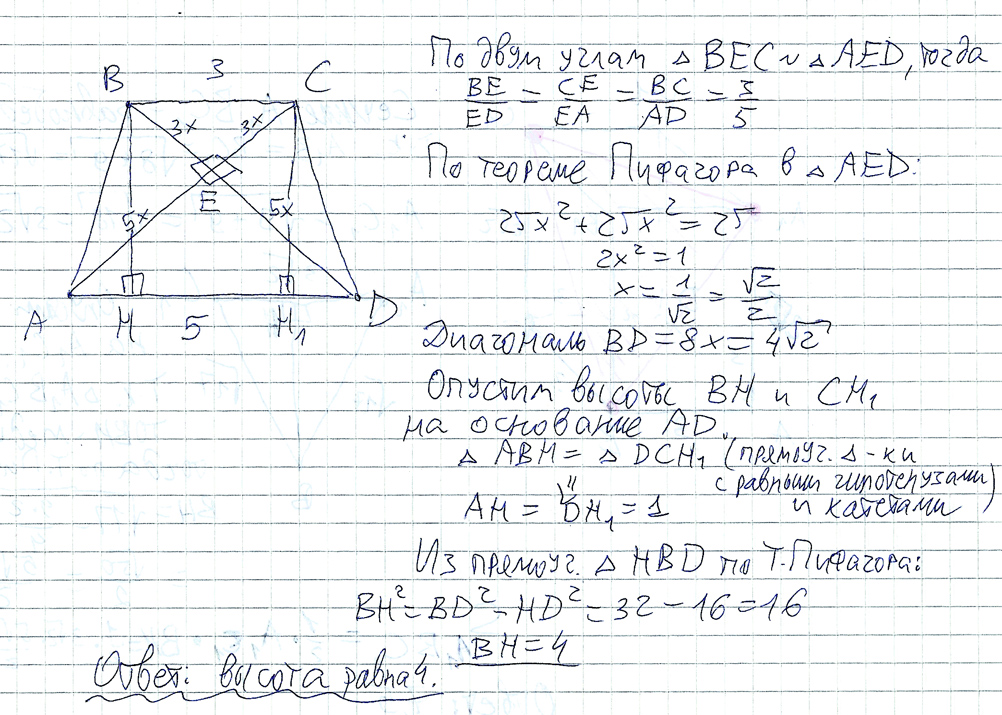 B 3 C
3x 3x
E
5x 5x
A H 5 H₁ D
По двум углам △ BEC ~ △ AED, тогда
BE/ED = CE/EA = BC/AD = 3/5
По теореме Пифагора в △ AED:
25x² + 25x² = 25
2x² = 1
x = 1/√2 = √2/2
Диагональ BD = 8x = 4√2
Опустим высоты BH и CH₁
на основание AD.
△ ABH = △ DCH₁ (прямоуг. △-ки
с равными гипотенузами)
и катетами
AH = DH₁ = 1
Из прямоуг. △ HBD по Т.Пифагора:
BH² = BD² - HD² = 32 - 16 = 16
BH = 4
Ответ: высота равна 4.